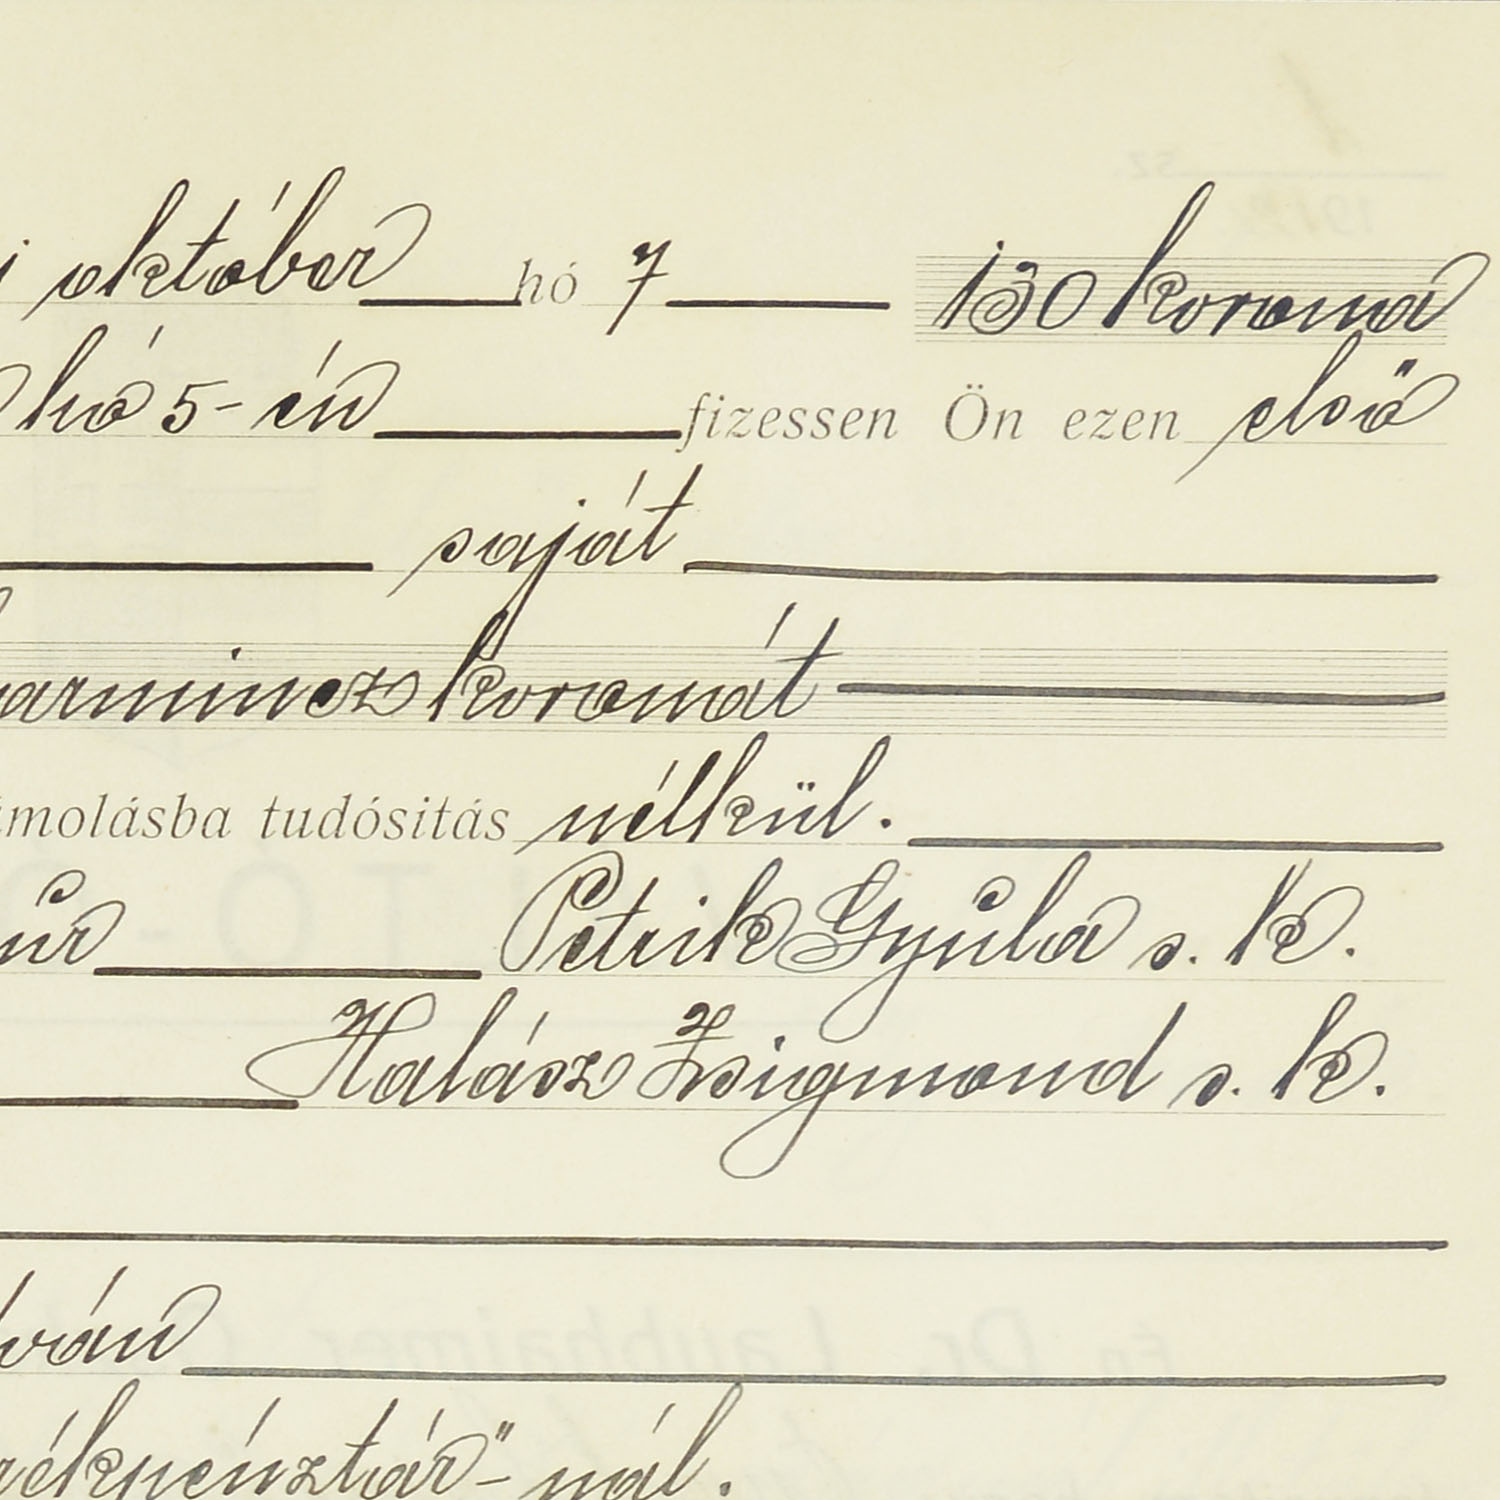 i október hó 7 130 korona
hó 5-én fizessen Ön ezen első
saját
harmincz koronát
ámolásba tudósitás nélkül.
úr Petrik Gyula s. k.
Halász Zsigmond s. k.
tván
rékpénztár"-nál.